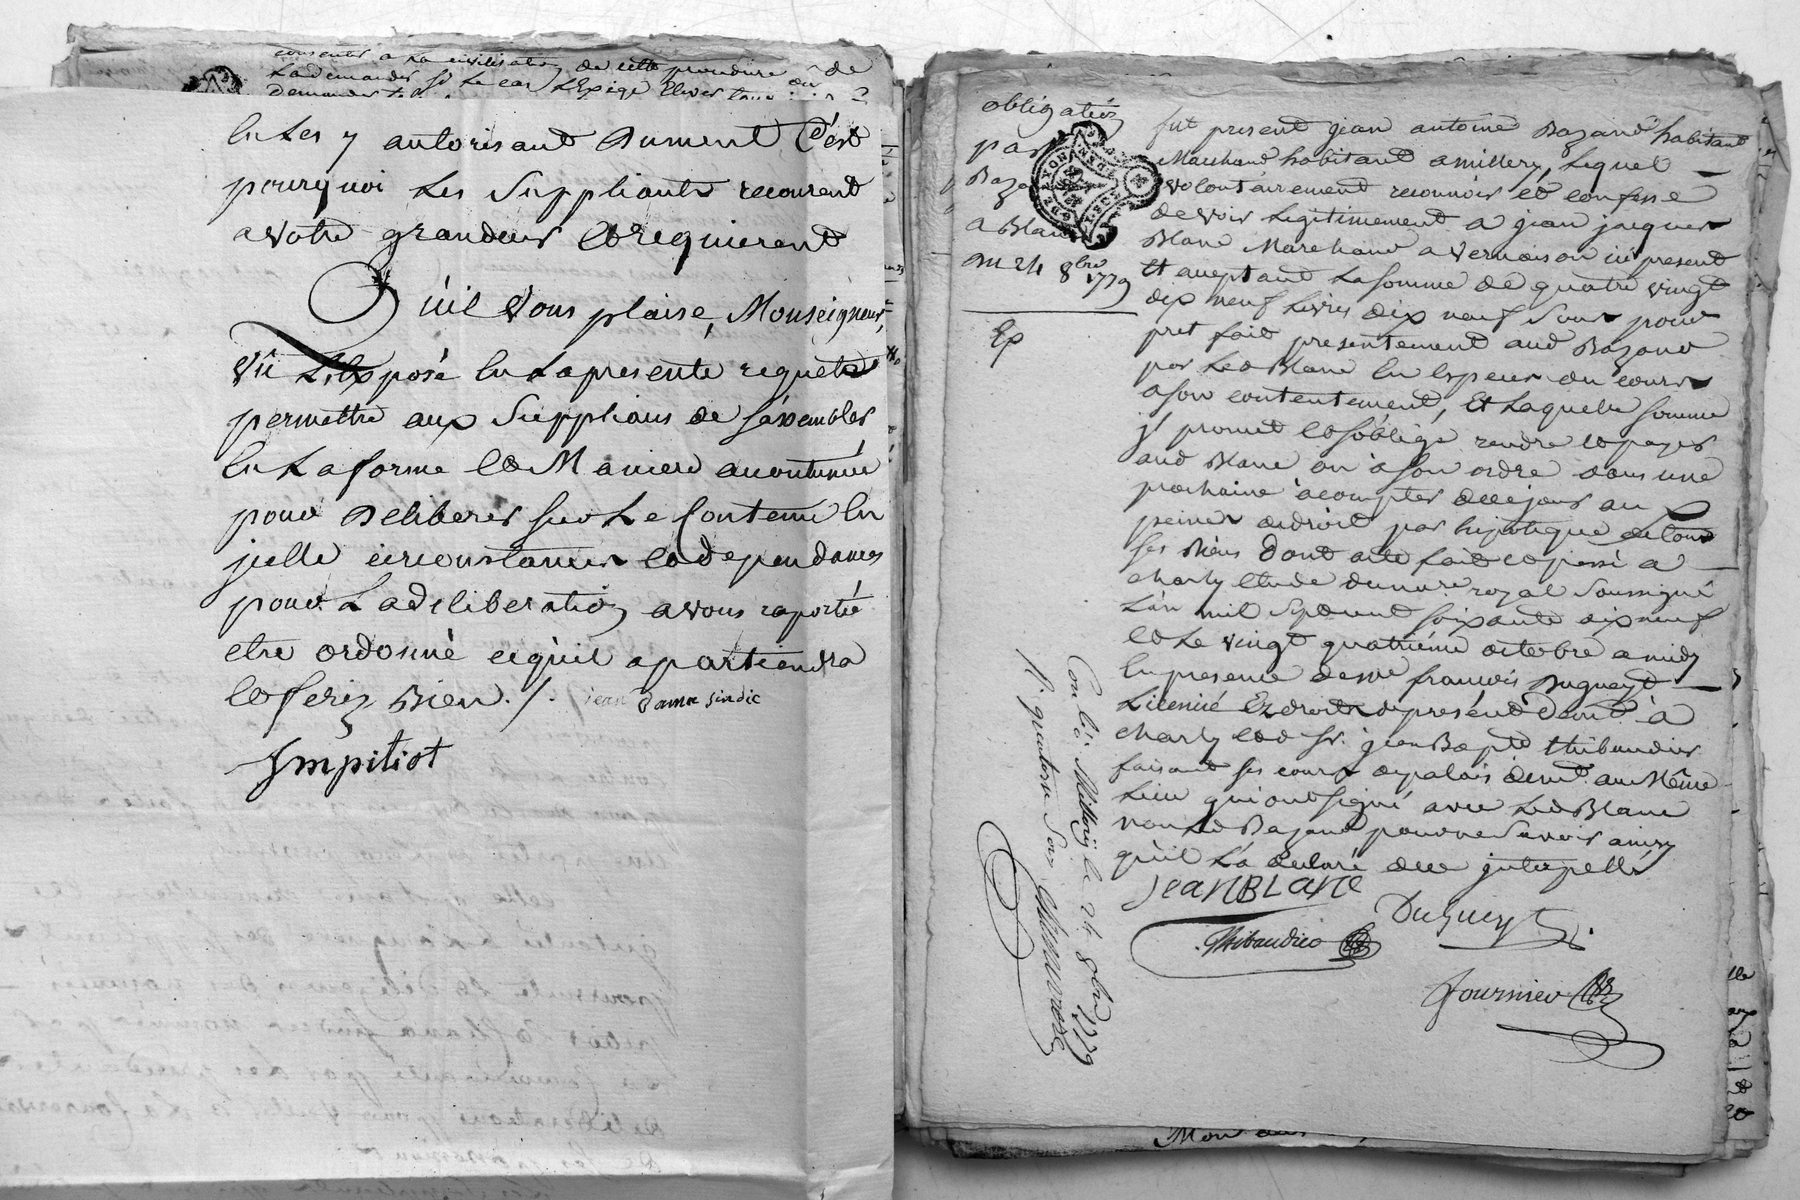 consentir a la civilisation de cette procedure
de
la demander si le cas l'exige
en Les y autorisant Dument C'est
pourquoi Les Suppliants recourent
a votre grandeur et requierent
Qu'il vous plaise, Monseigneur,
Vû L'Exposé en La presente requete
permettre aux Supplians de s'assembler
en La forme et Maniere accoutumée
pour Deliberer sur Le Contenu en
icelle circonstances et dependances
pour La deliberation a vous raportée
etre ordonné ce qu'il apartiendra
et ferez Bien ./. jean dama sindic
Impitiot
obligation
par
Baza
a Blan
Du 24 8bre 1779
Ex
fut present jean antoine Bazand habitant
Marchand habitant a millery, Lequel
volontairement reconnois et confesse
devoir Legitimement a jean jacques
Blanc Marchand a vernaison ici present
Et aceptant La somme de quatre vingt
dix neuf Livres dix neuf Sous pour
pret fait presentement aud Bazand
par Led Blanc En Especes du cours
a son contentement, Et Laquelle somme
il promet et s'oblige rendre et payer
aud Blanc ou a son ordre dans une
prochaine a compter de ce jour au
peines de droit par hipotique de tous
ses Biens Dont acte fait et passé a
charly Etude du nore royal Soussigné
L'an mil Sept cent soixante dix neuf
et Le vingt quatrième octobre a midy
En presence de me francois Dugueyt
Licencié Ez droits de présent demt à
charly et de sr. jean Bapte thibaudier
faisant ses cours de palais demt. au Même
Lieu qui ont signé avec Led Blanc
non Led Bazand pour ne Savoir ainsy
qu'il L'a declaré de ce interpellé
JEAN BLANC
Dugueyt
Thibaudier
fournier
Con. lé a Millery le 24 8bre 1779
R. quatorze Sols